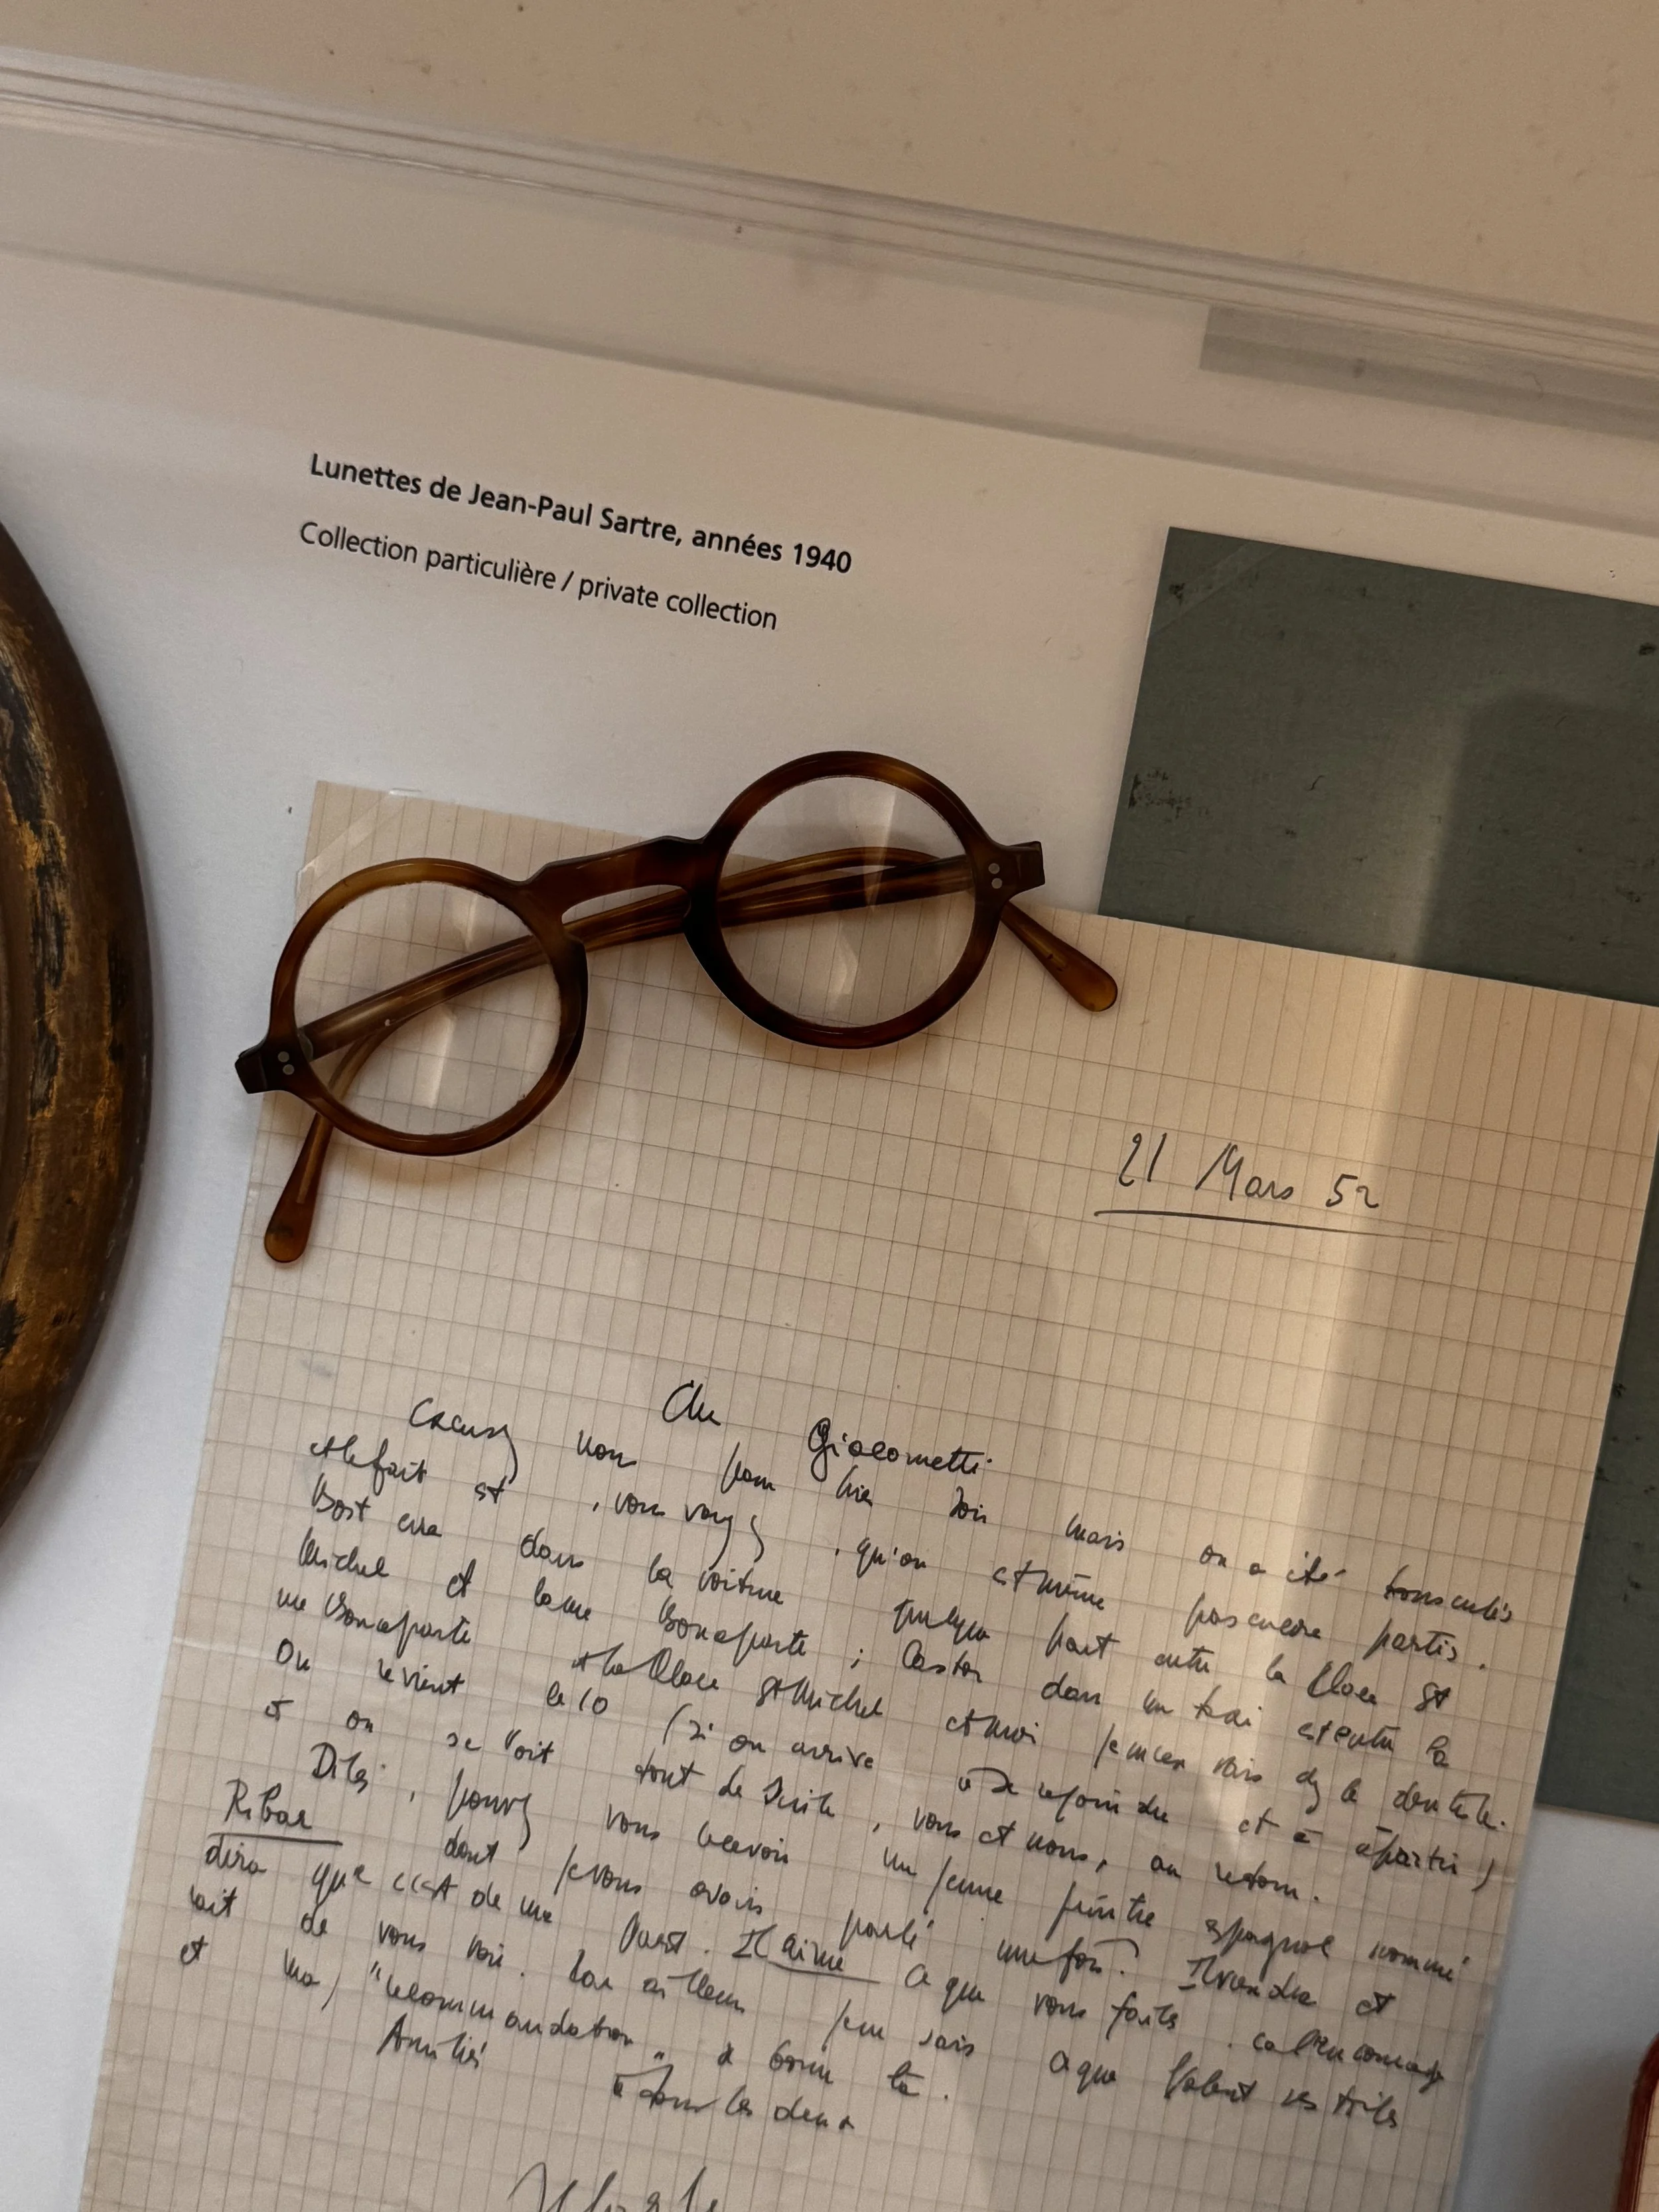 Lunettes de Jean-Paul Sartre, années 1940
Collection particulière / private collection
21 Mars 52
Cher Giacometti
Excusez nous pour hier soir mais on a été bousculés
et le fait est, vous voyez, qu'on est même pas encore partis.
Bost erre dans la voiture quelque part entre la Place St
Michel et la rue Bonaparte ; Castor dans un taxi est entre la
rue Bonaparte et la Place St Michel et moi je m'en vais chez le dentiste.
On revient le 10 (si on arrive à se rejoindre et à partir)
et on se voit tout de suite, vous et nous, au retour.
Dites, pouvez vous recevoir un jeune peintre espagnol nommé
dont je vous avais parlé une fois? Il viendra et
dira que c'est de ma part. Il aime ce que vous faites. ça l'encouragerait
de vous voir. Par ailleurs je ne sais ce que valent ses toiles
et ma "recommandation" se borne là.
Amitiés à tous les deux